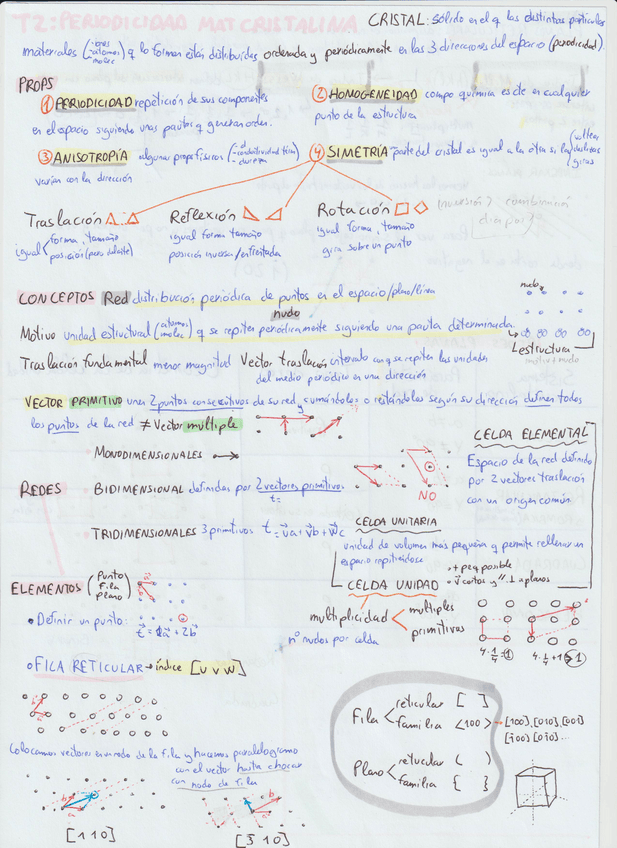 T2: PERIODICIDAD MAT CRISTALINA
CRISTAL: sólido en el q los distintas partículas
materiales (-iones -átomos -molec) q lo forman están distribuidas ordenada y periódicamente en las 3 direcciones del espacio (periodicidad).
PROPS
① PERIODICIDAD repetición de sus componentes
en el espacio siguiendo unas pautas q generan orden.
② HOMOGENEIDAD compo química es cte en cualquier
punto de la estructura
③ ANISOTROPÍA algunas props físicas (-d -conductividad térm -dureza)
varían con la dirección
④ SIMETRÍA parte del cristal es igual a la otra si la (volteas deslizas giras
Traslación
igual < forma, tamaño
posición (pero delante)
Reflexión
igual forma tamaño
posición inversa/enfrentada
Rotación
igual forma, tamaño
gira sobre un punto
inversión? combinación
diapos?
CONCEPTOS Red distribución periódica de puntos en el espacio/plano/línea
nudo
nudo
Motivo unidad estructural (átomos molec) q se repiten periódicamente siguiendo una pauta determinada.
Lestructura
motivo + nudo
Traslación fundamental menor magnitud Vector traslación intervalo con q se repiten las unidades
del medio periódico en una dirección
VECTOR PRIMITIVO una 2 puntos consecutivos de su red y sumándolos o restándolos según su dirección definen todos
los puntos de la red ≠ Vector multiple
MONODIMENSIONALES
NO
CELDA ELEMENTAL
Espacio de la red definido
por 2 vectores traslación
con un origen común
REDES BIDIMENSIONAL definidas por 2 vectores primitivos.
t=
TRIDIMENSIONALES 3 primitivos t = ua + vb + wc
CELDA UNITARIA
unidad de volumen más pequeña q permite rellenar un
espacio repitiéndose
CELDA UNIDAD
• + peq posible
• V cortos y // ⊥ a planos
ELEMENTOS (Punto Fila Plano
• Definir un punto:
t = 1a + 2b
multiplicidad < multiples
primitivos
nº nudos por celda
4·1/4=1
4·1/4+1>1
o FILA RETICULAR → índice [u v w]
Fila < reticular [ ]
familia <100> → [100], [010], [001]
[100] [010]...
Plano < reticular ( )
familia { }
Colocamos vectores en un nodo de la fila y hacemos paralelogramo
con el vector hasta chocar
con nodo de fila
a
b
[1 1 0]
[3 1 0]